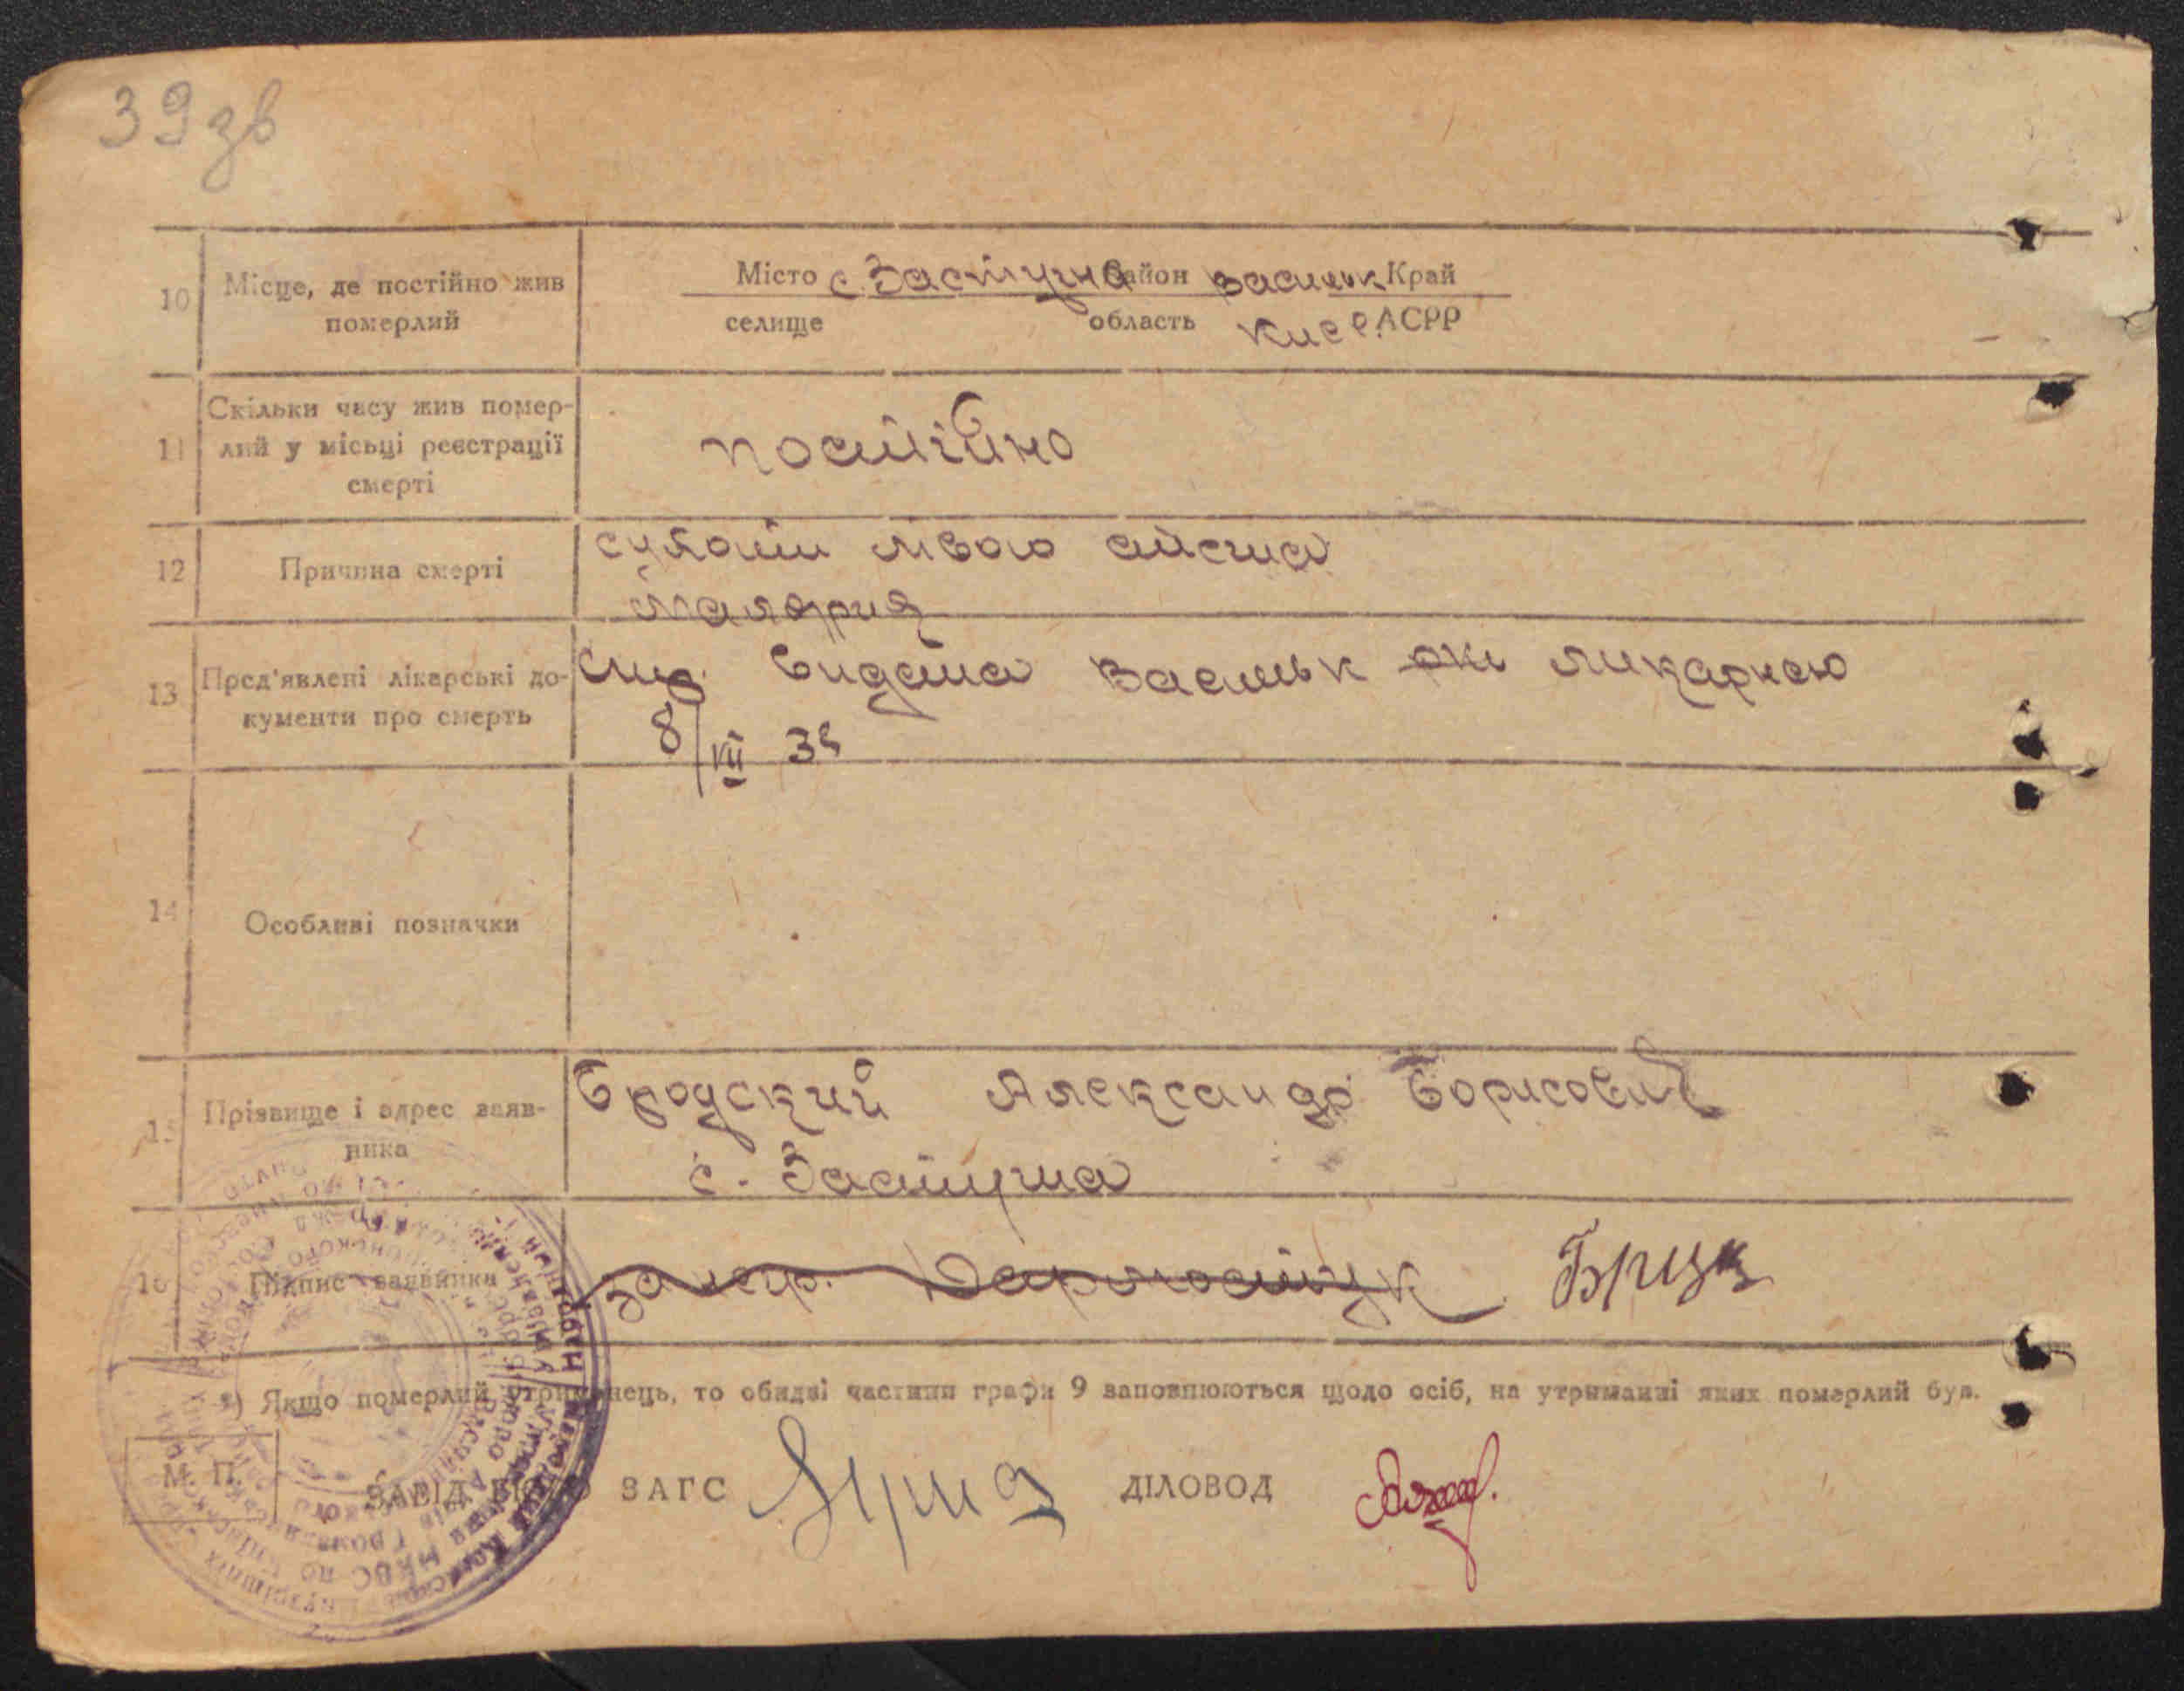 39 зв
10 Місце, де постійно жив померлий
Місто с. Застугна Район Васильк Край
селище область Київ. АСРР
11 Скільки часу жив померлий у місьці реєстрації смерті
постійно
12 Причина смерті
малярия
13 Пред'явлені лікарські документи про смерть
видана Васильк ликарнею
8/VIII 39
14 Особливі позначки
15 Прізвище і адрес заявника
Бродский Александр Борисович
с. Застугна
16 Підпис заявника
*) Якщо померлий утриманець, то обидві частини графи 9 заповнюються щодо осіб, на утриманні яких померлий був.
М. П.
ЗАВІД. БЮРО ЗАГС ДІЛОВОД